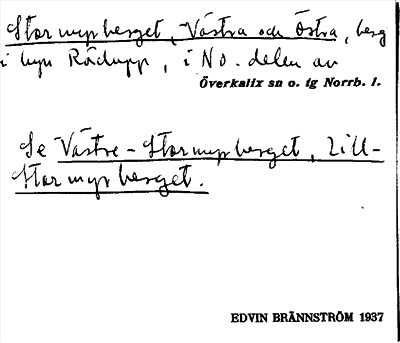 Stormyrberget, Västra och Östra, berg
i byn Rödupp, i NO. delen av
Överkalix sn o. tg Norrb. l.
Se Västre-Stormyrberget, Lill-
Stormyrberget.
EDVIN BRÄNNSTRÖM 1937